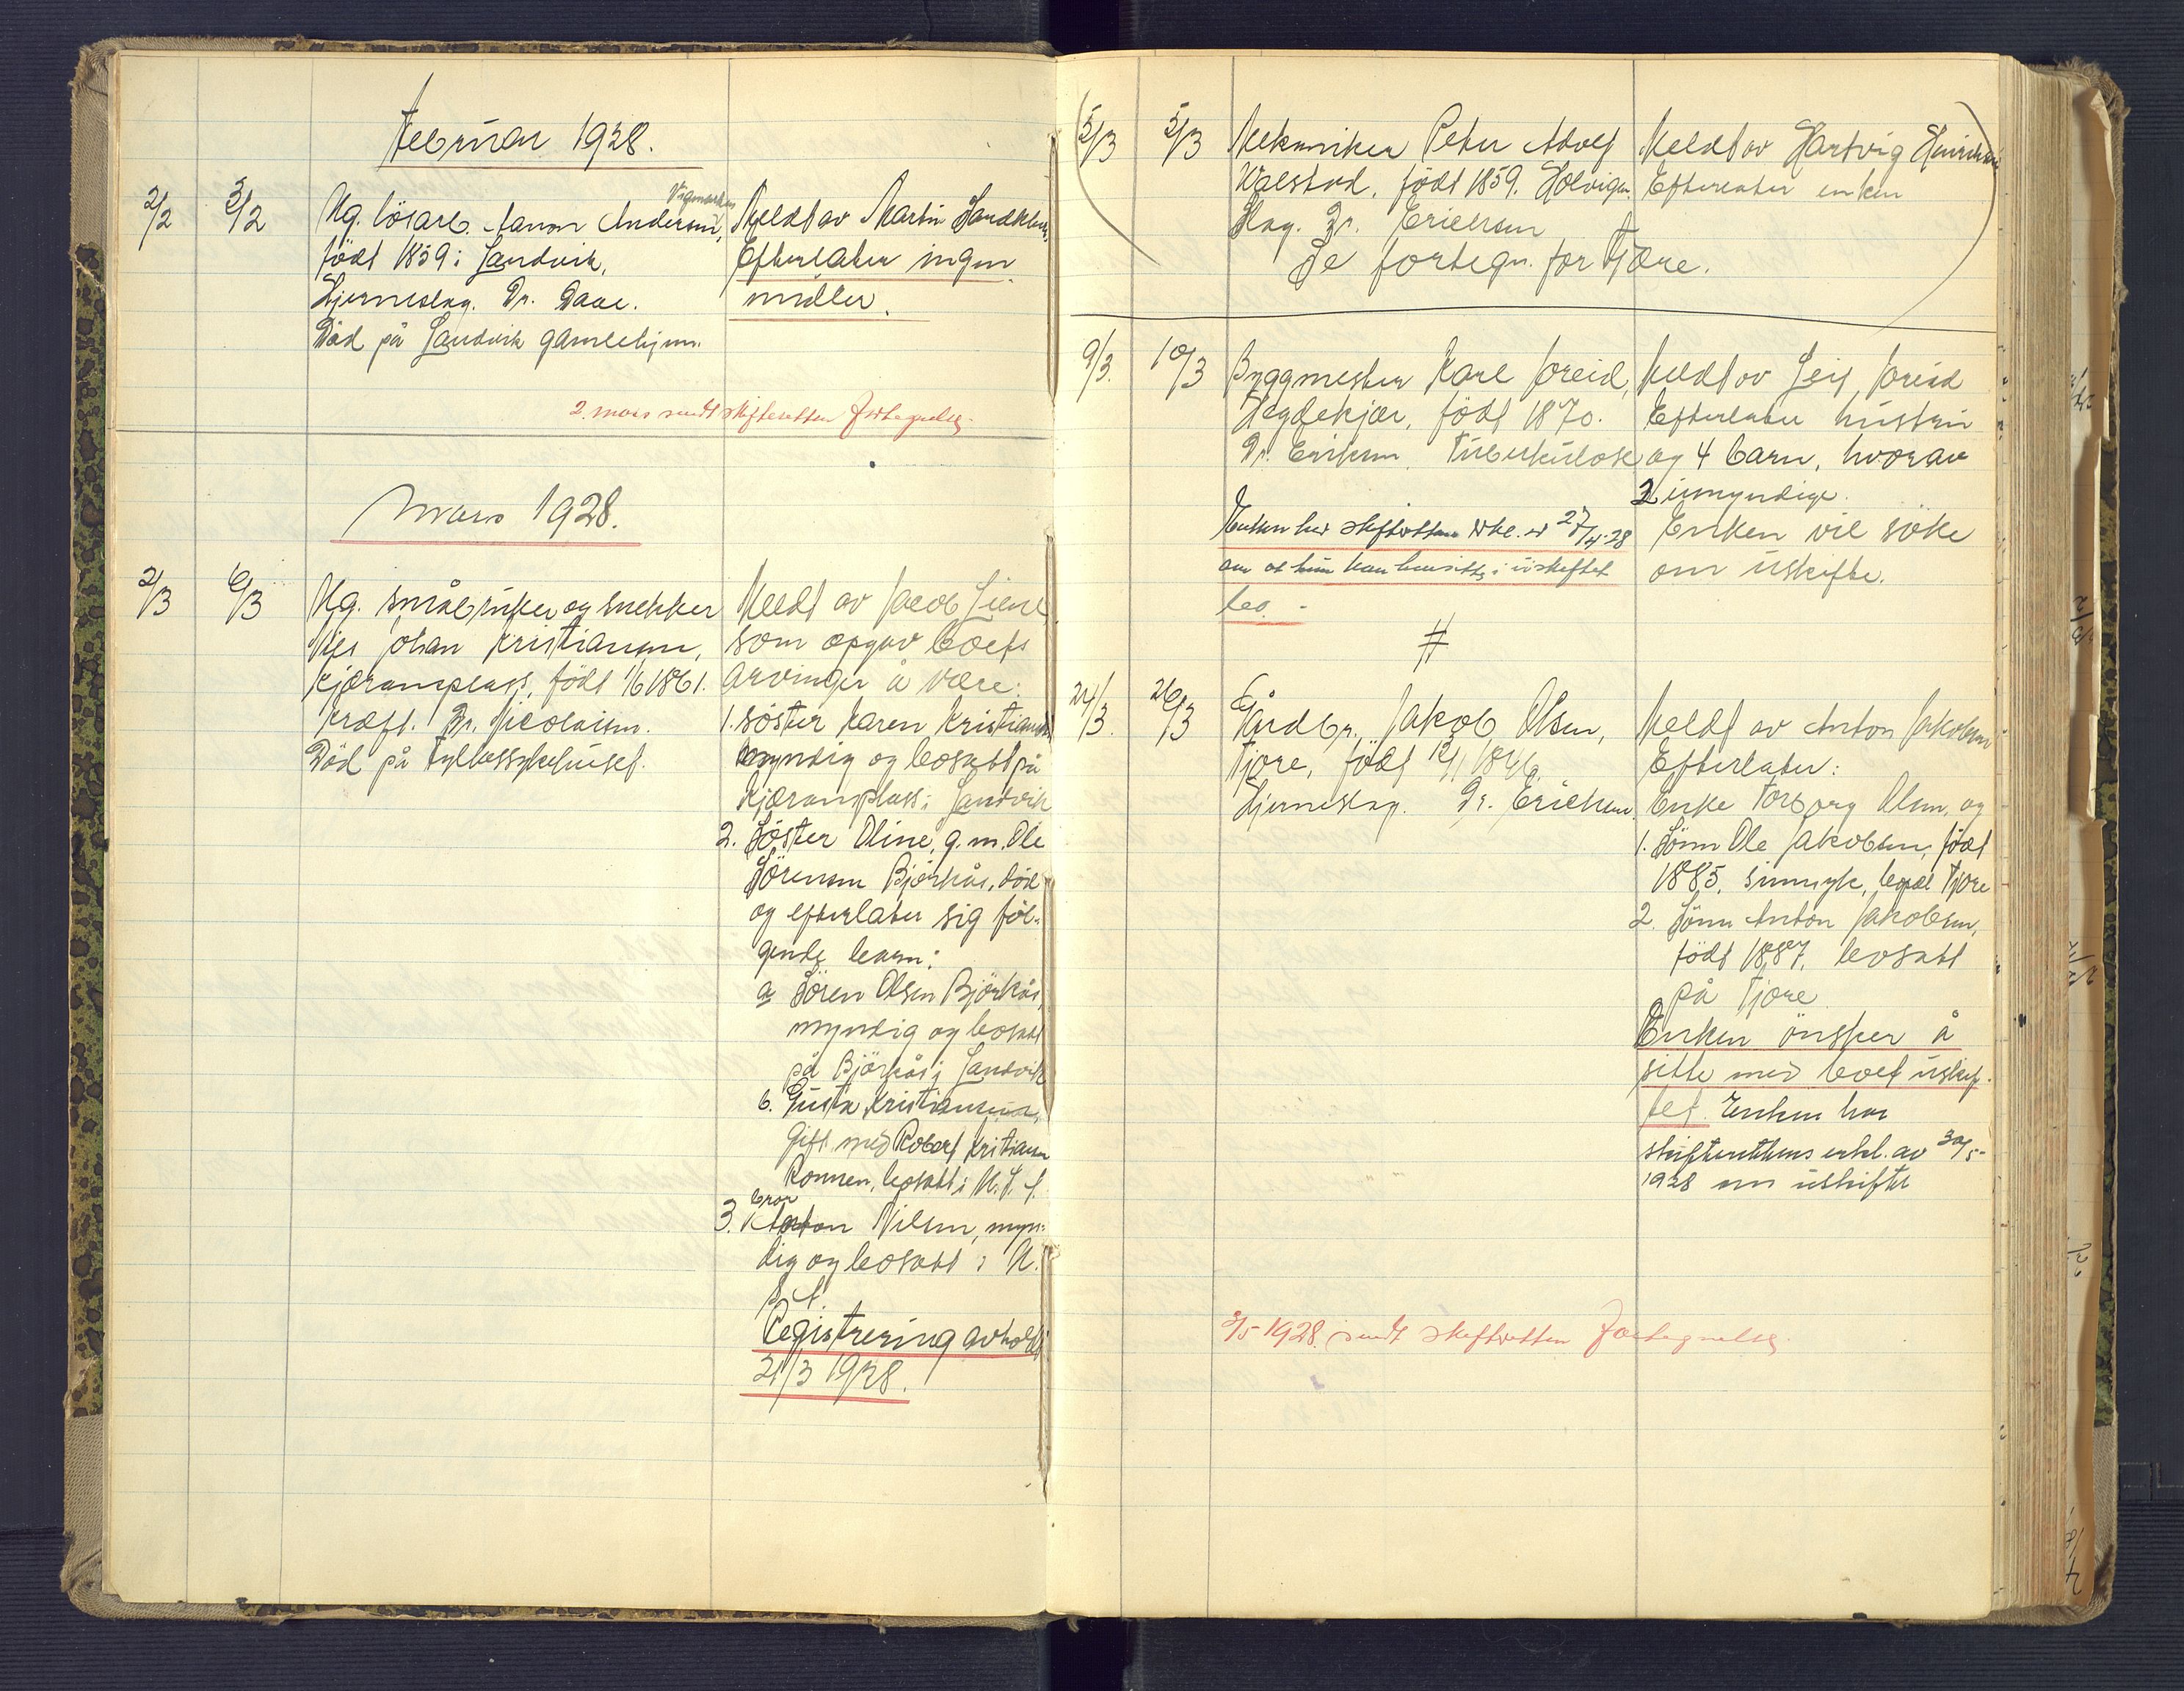 Februar 1928.
2/2 3/2 Ug. lösarb. Aanon Andersen, Vigmarken
født 1859 i Landvik,
Hjerneslag. Dr. Daae.
Död på Landvik gamlehjem.
Meldt av Martin
Efterlater ingen
midler.
2. mars sendt skifteretten fortegnelse.
Mars 1928.
2/3 6/3 Ug. småbruker og snekker
Nils Johan Kristiansen,
Kjæramplass, født 1/6 1861.
Kræft. Dr. Nicolaisen.
Död på Fylkessykehuset.
Meldt av Jacob Liene
som opgav boets
arvinger å være:
1. Söster Karen Kristiansen
myndig og bosatt på
Kjæramplass i Landvik
2. Söster Oline, g. m. Ole
Sörensen Björkås, död
og efterlater sig föl-
gende barn:
a Sören Olsen Björkås,
myndig og bosatt
på Björkås i Landvik
b. Gusta Kristiansen,
gift med Robert Kristiansen
Ronnen, bosatt i U. S. A.
3. bror Anton Nilsen, myn-
dig og bosatt i U.
S. A.
Registrering avholdt
21/3 1928.
5/3 5/3 Mekaniker Peter Adolf
Walstad, födt 1859. Holviga.
Slag. Dr. Ericksen
Se fortegn. for Fjære.
Meldt av Hartvig Henrichsen
Efterlater enken
9/3. 10/3 Byggmester Karl Breid,
Hegdekjær, födt 1870.
Dr. Eriksen. Tuberkulose
Enken har skifterettens erkl. av 27/4-28
om at hun kan hensitte i uskiftet
bo. -
Meldt av Leif Breid
Efterlater hustru
og 4 barn, hvorav
2 umyndige.
Enken vil söke
om uskifte.
#
24/3. 26/3 Gårdbr. Jakob Olsen,
Fjöre, födt 12/1 1846.
Hjerneslag. Dr. Ericksen.
Meldt av Anton Jakobsen
Efterlater:
Enke Torborg Olsen, og
1. Sönn Ole Jakobsen, födt
1885, sinnsyk, bopæl Fjöre
2. Sönn Anton Jakobsen,
födt 1887, bosatt
på Fjöre
Enken önsker å
sitte med boet uskif-
tet. Enken har
skifterettens erkl. av 30/5-
1928 om uskifte
3/5 1928. sendt skifteretten fortegnelse